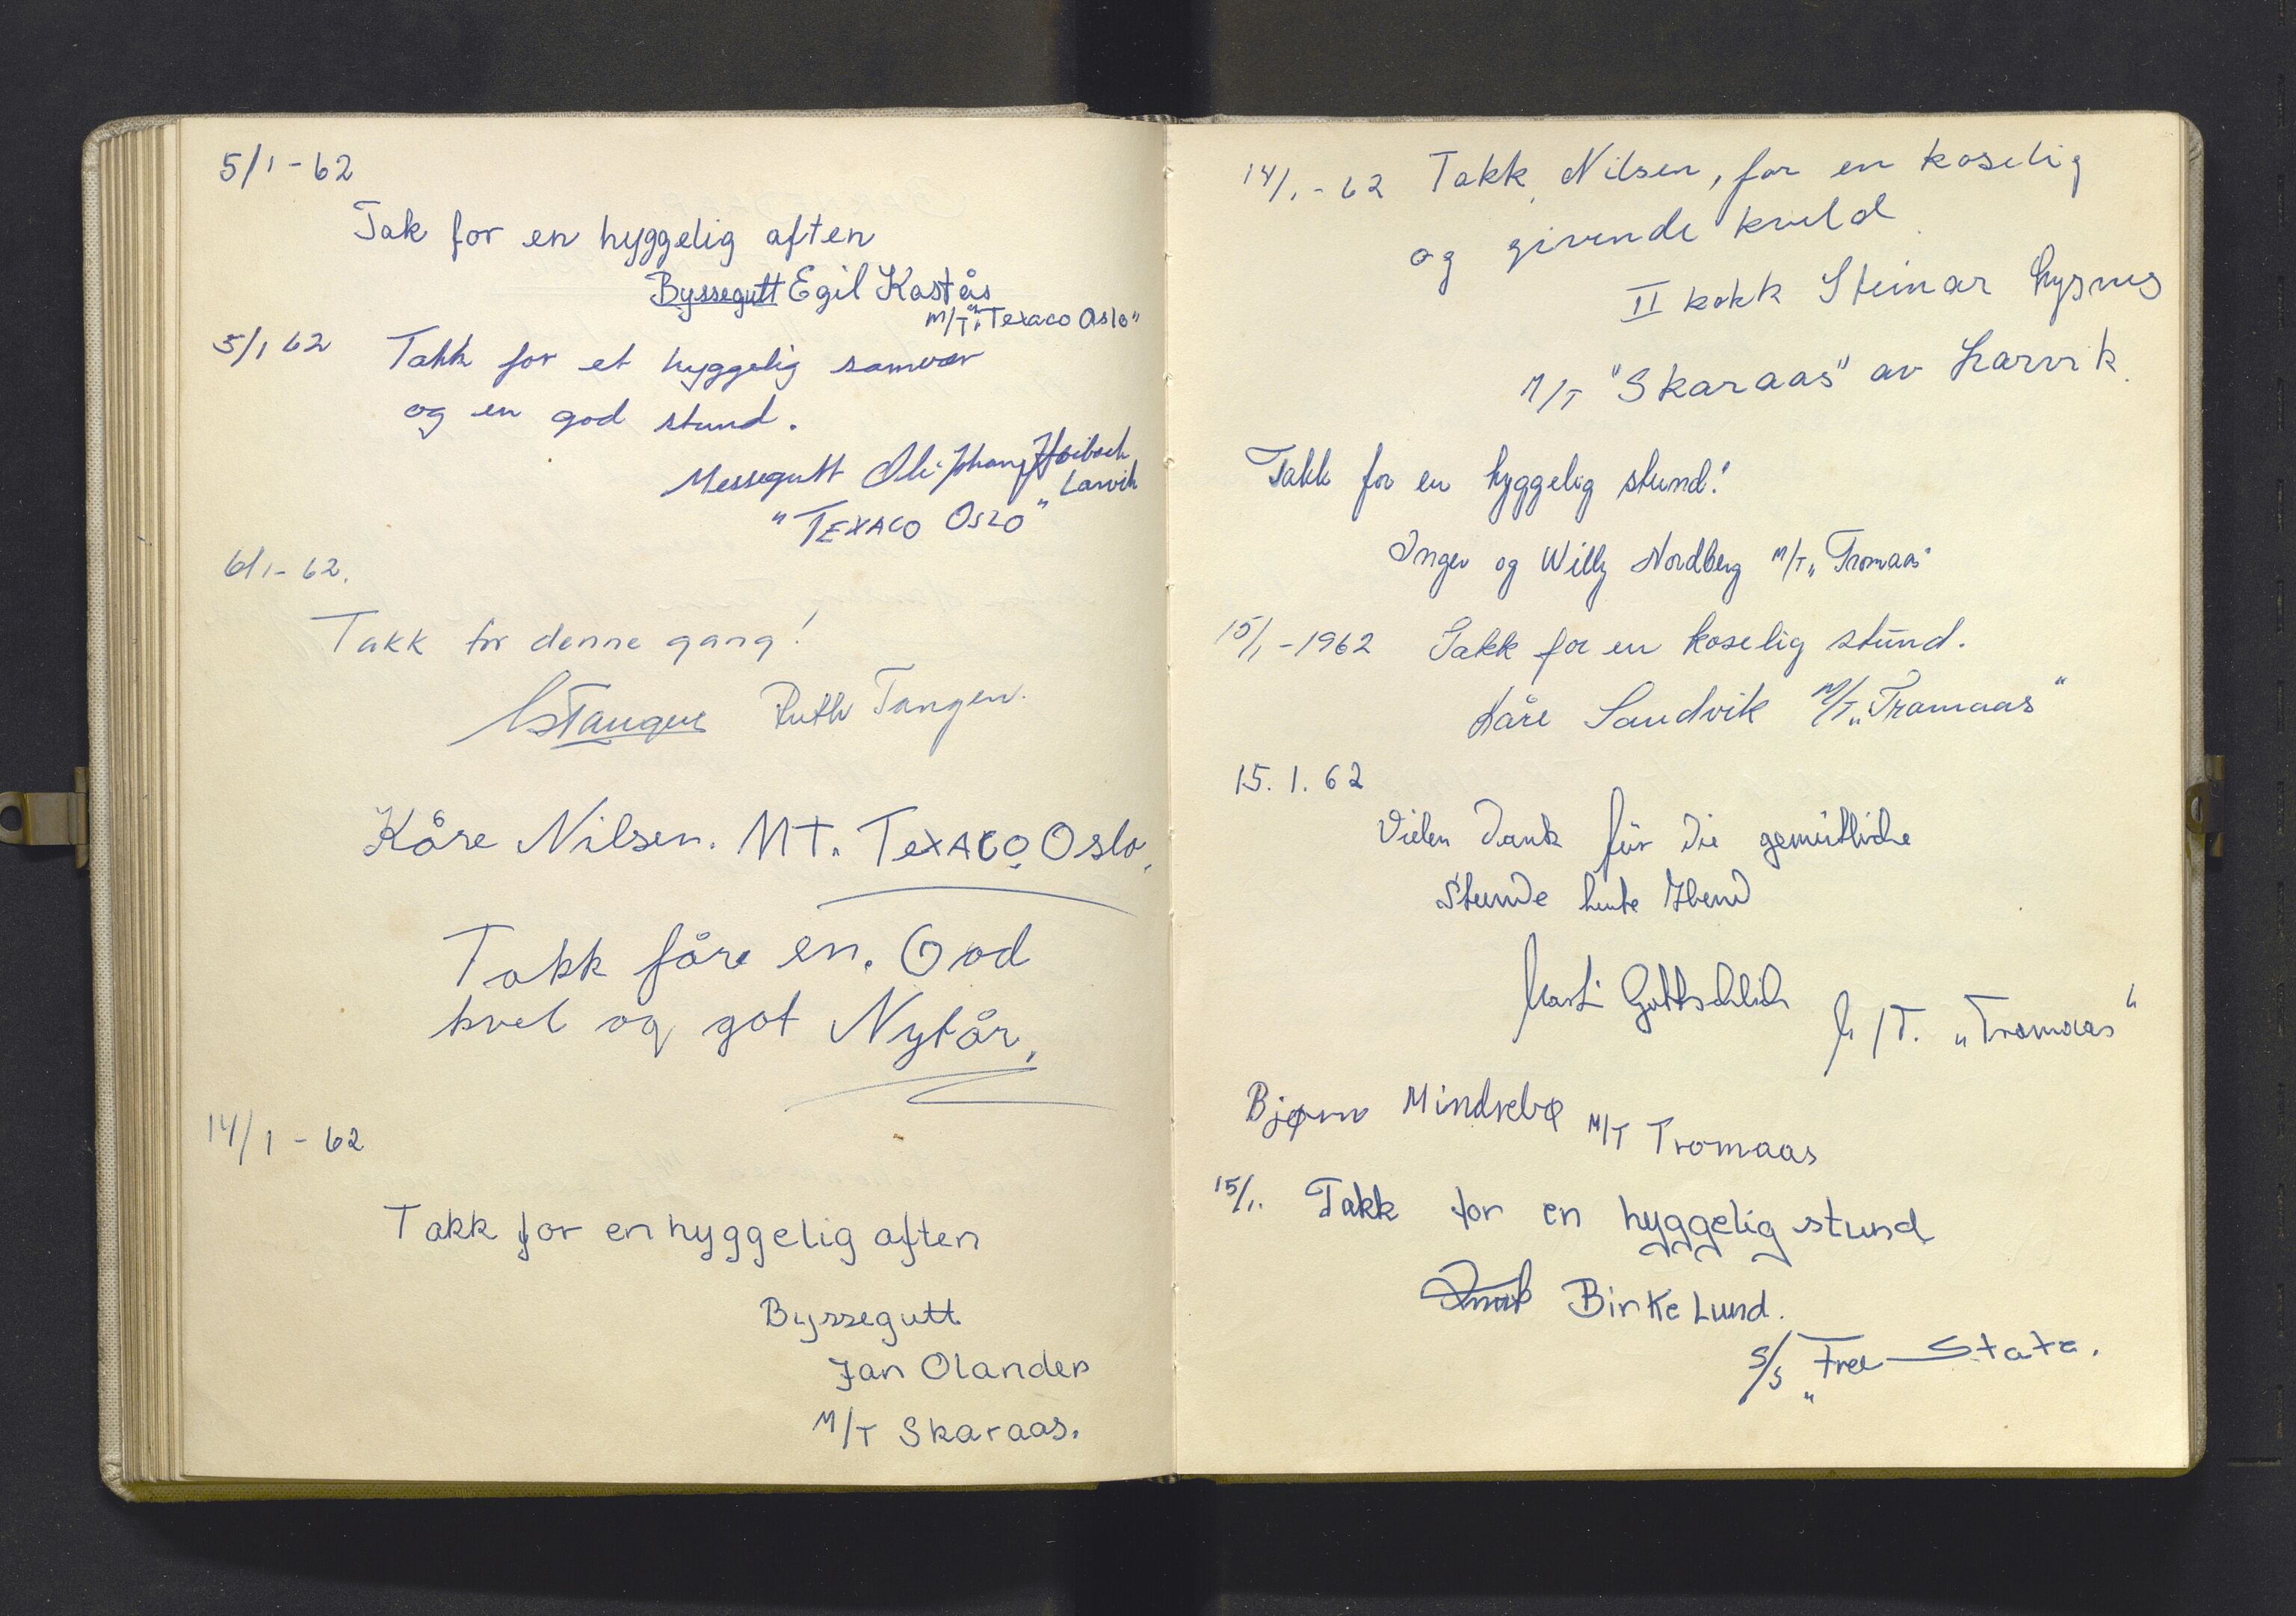 5/1-62
Tak for en hyggelig aften
Byssegutt Egil Kastås
M/T "Texaco Oslo"
5/1 62 Takk for et hyggelig samvær
og en god stund.
Messegutt
Larvik
"TEXACO OSLO"
6/1-62.
Takk for denne gang!
Ruth Tangen.
Kåre Nilsen. MT. TEXACO Oslo.
Takk føre en. God
kvel og got Nytår.
14/1-62
Takk for en hyggelig aften
Byssegutt
Jan Olander
M/T Skaraas.
14/1.-62 Takk, Nilsen, for en koselig
og givende kveld
II kokk Steinar Lysnes
M/T "Skaraas" av Larvik.
Takk for en hyggelig stund!
Inger og Willy Nordberg M/T „Tromaas"
15/1-1962 Takk for en koselig stund.
Kåre Sandvik M/T „Tromaas"
15.1.62
Vielen Dank für die gemütliche
Stunde heute Abend
Gottschlich M/T. „Tromaas"
Bjørn Mindrebø M/T Tromaas
15/1. Takk for en hyggelig stund
Birkelund.
S/S „Free-State.